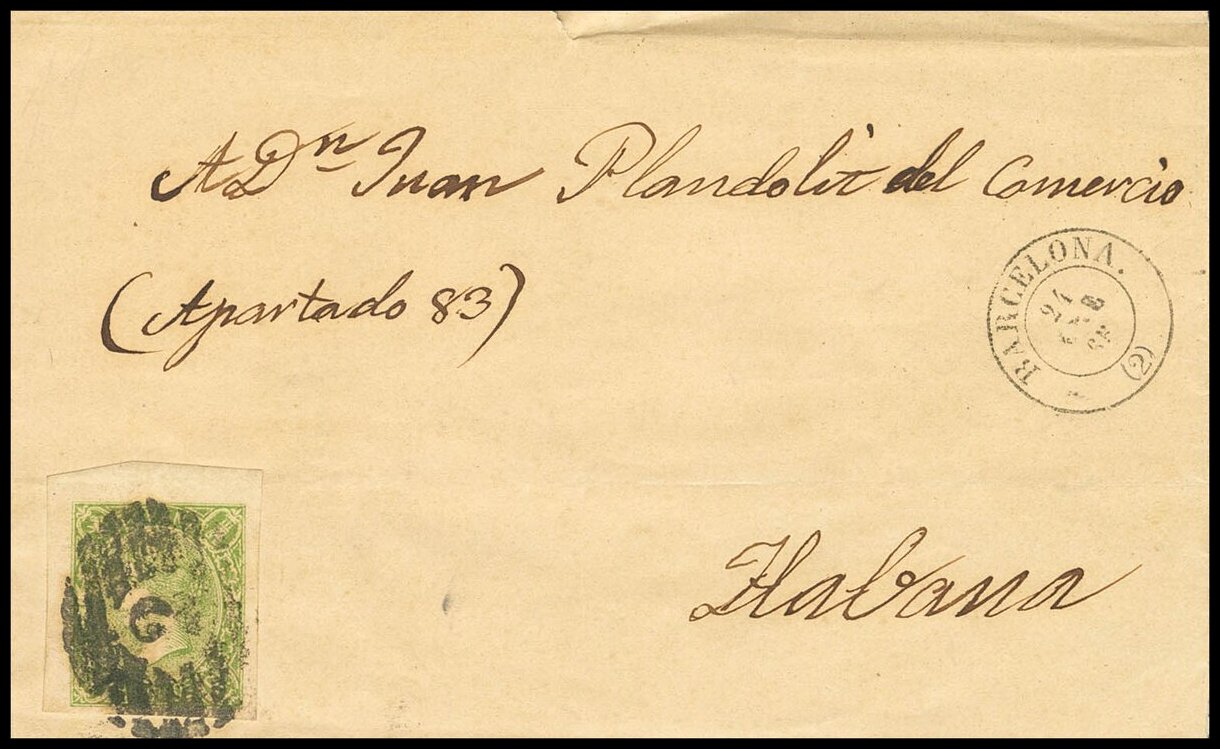 A Dn Juan Plandolit del Comercio
(Apartado 83)
BARCELONA.
24
(2)
2
Habana